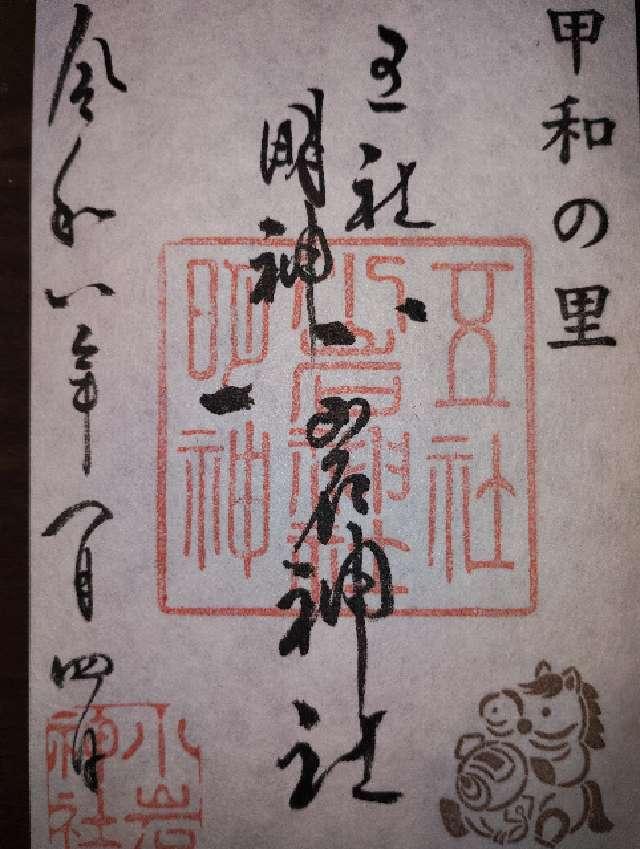 甲和の里
五社
明神
小岩神社
令和八年一月四日
五社
小岩神社
明神
小岩
神社